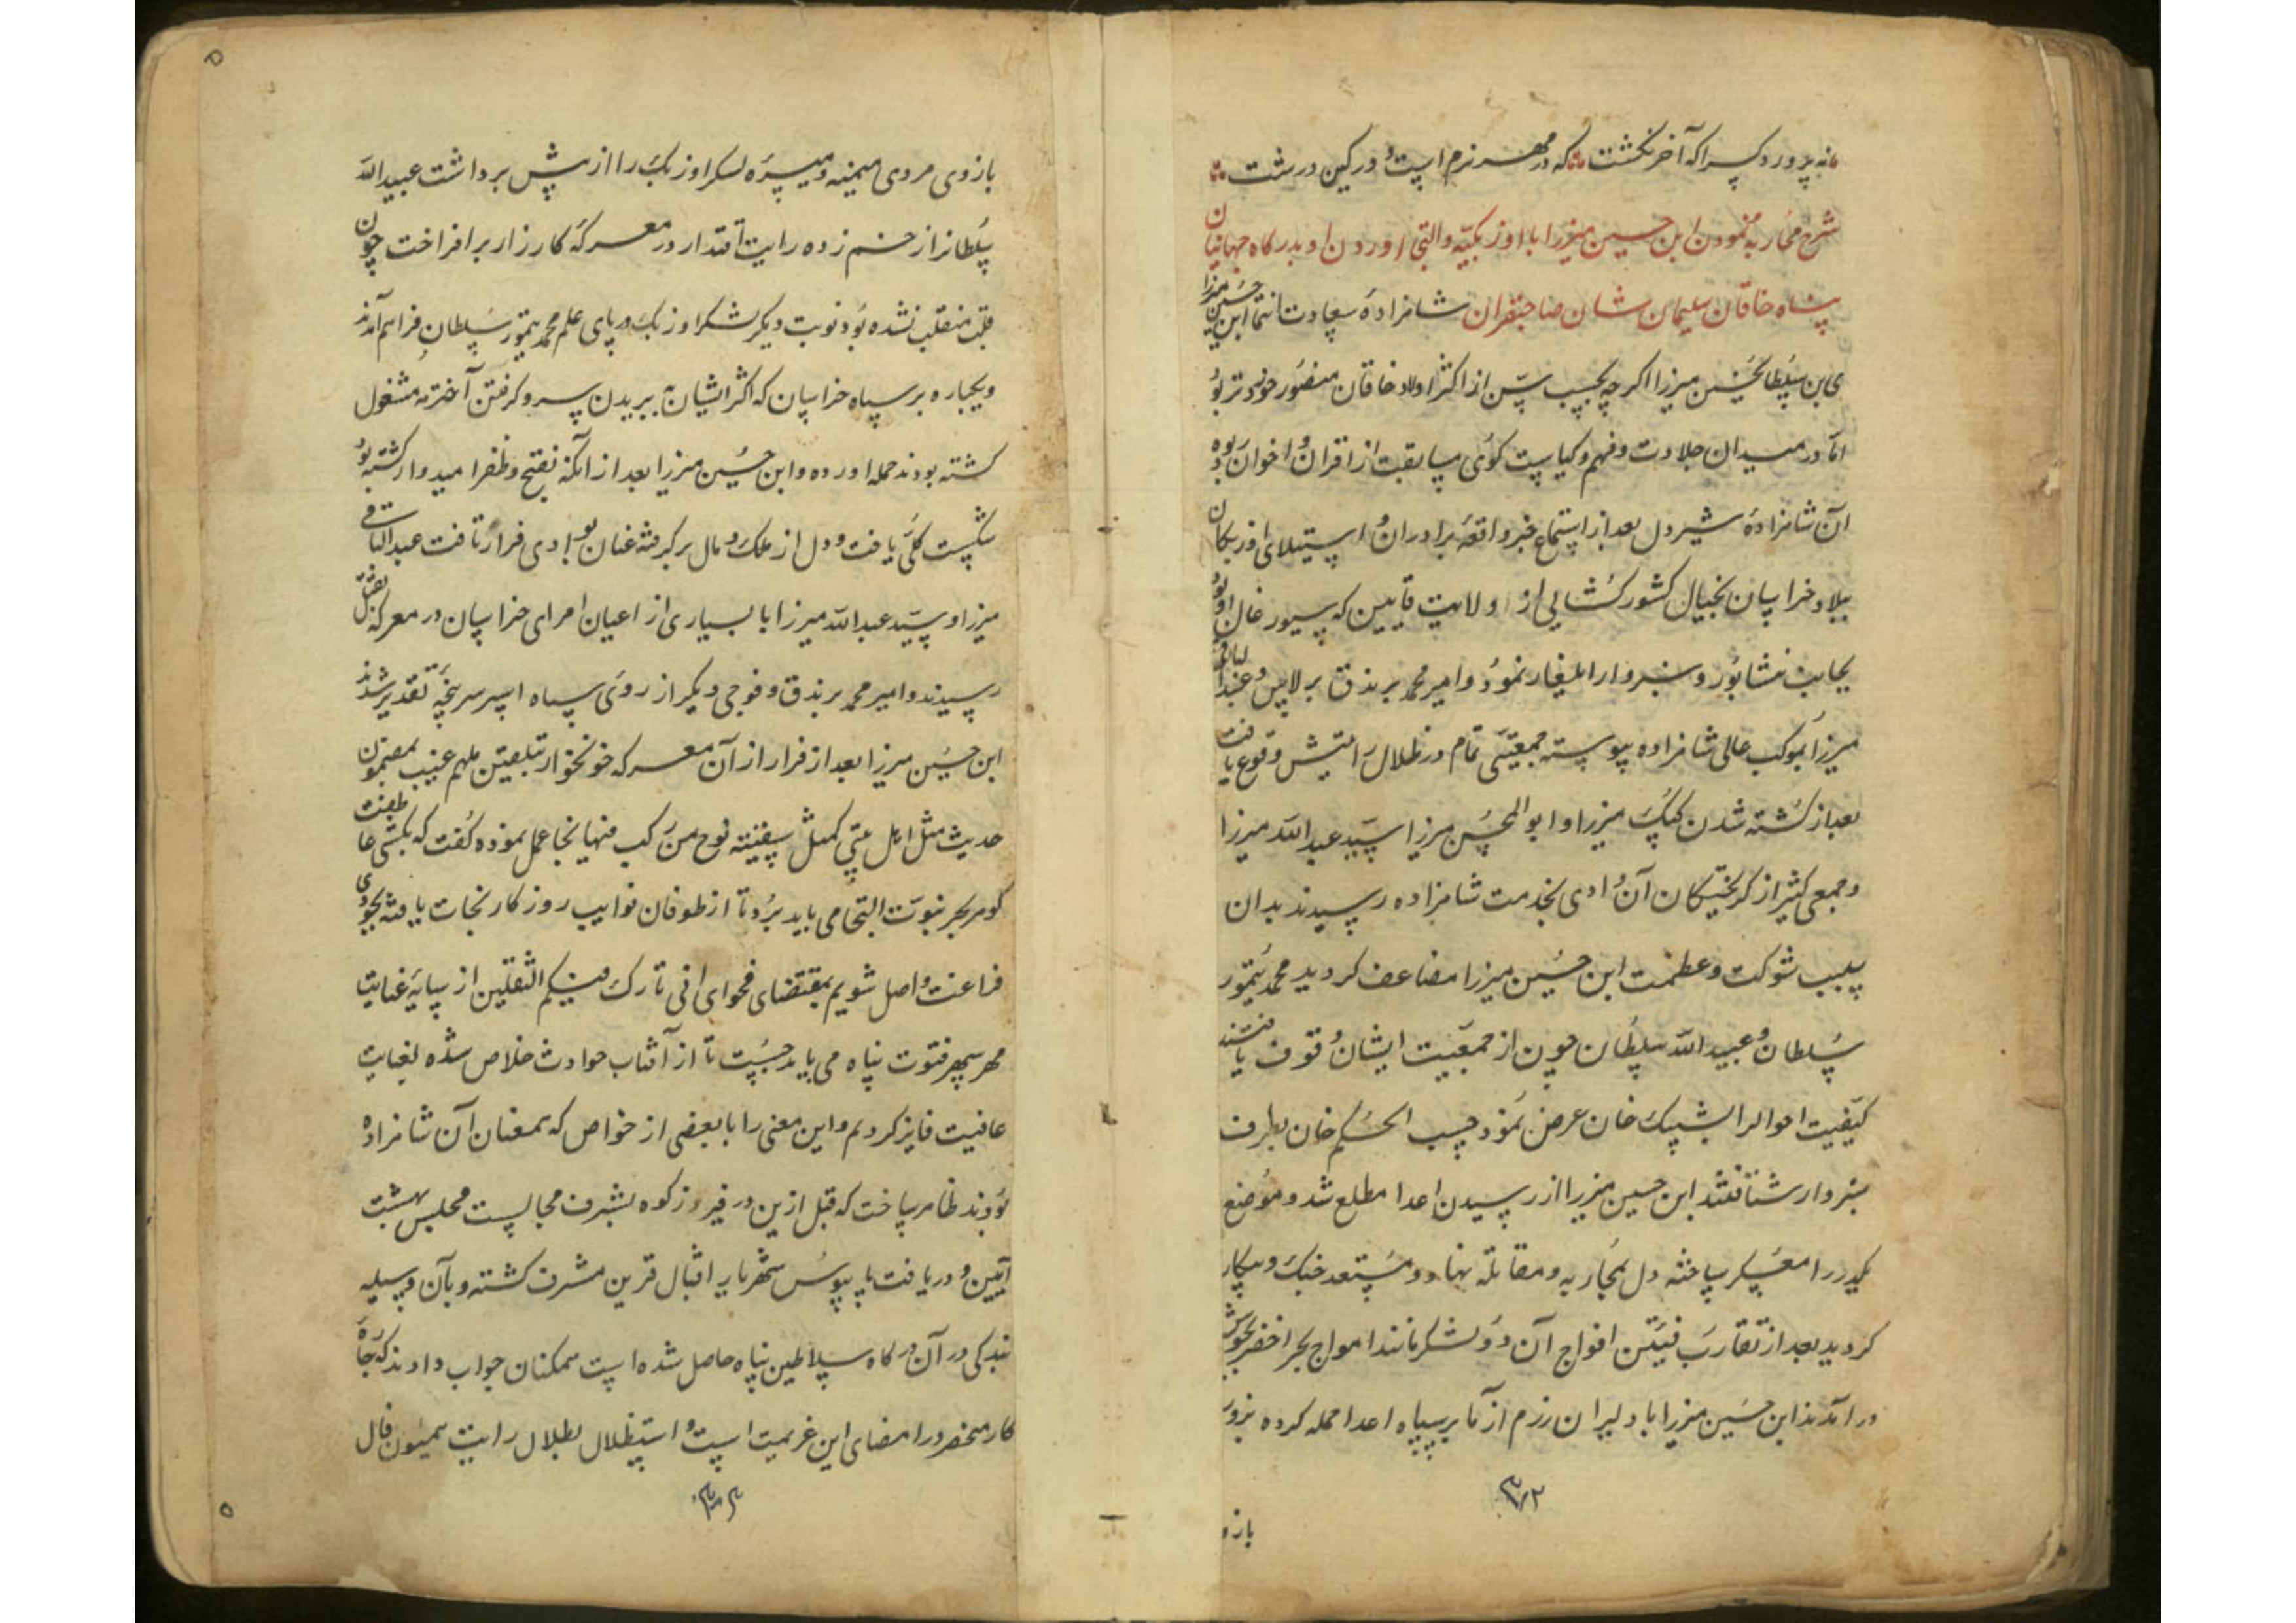 نه پرورد کسرا که آخر نکشت که در مهر نرم است و در کین درشت
شرح محاربه نمودن ابن حسین میرزا با اوزبکیه و التجا اوردن او بدرکاه جهانیان
پناه خاقان سلیمان شان صاحبقران شاهزادهٔ سعادت انتما ابن حسین میرزا
ی بن سلطانحسین میرزا اکرچه بحسب سن از اکثر اولاد خاقان منصور خوردتر بود
اما در میدان جلادت و فهم و کیاست کوی مسابقت از اقران و اخوان ربوده
آن شاهزادهٔ شیردل بعد از استماع خبر واقعهٔ برادران و استیلای اوزبکان
ببلاد خراسان بخیال کشورکشایی از ولایت قاین که سیورغال او بود
بجانب نشابور و سبزوار ایلغار نمود و امیر محمد برندق برلاس و عبدالباقی
میرزا بموکب عالی شاهزاده پیوسته جمعیتی تمام در ظلال رایتش وقوع یافت
بعد از کشته شدن کپک میرزا و ابوالمحسن میرزا سید عبدالله میرزا
و جمعی کثیر از کریختکان آن وادی بخدمت شاهزاده رسیدند بدان
سبب شوکت و عظمت ابن حسین میرزا مضاعف کردید محمد تیمور
سلطان و عبیدالله سلطان چون از جمعیت ایشان وقوف یافتند
کیفیت احوالرا بشیبک خان عرض نمود حسب الحکم خان بطرف
سبزوار شتافتند ابن حسین میرزا از رسیدن اعدا مطلع شد و موضع
را معسکر ساخته دل بمحاربه و مقاتله نهاد و مستعد جنک و پیکار
کردید بعد از تقارب فئتین افواج آن دو لشکر مانند امواج بحر اخضر بجوش
در آمدند ابن حسین میرزا با دلیران رزم آزما بر سپاه اعدا حمله کرده بزور
۳۰۲
بازو
بازوی مردی میمنه و میسرهٔ لسکر اوزبک را از پیش برداشت عبیدالله
سلطانرا زخم زده رایت اقتدار در معرکهٔ کارزار بر افراخت چون
قلب منقلب نشده بود نوبت دیکر لشکر اوزبک در پای علم محمد تیمور سلطان فراهم آمدند
و یکباره بر سپاه خراسان که اکثر ایشان به بریدن سر و کرفتن آخترمه مشغول
کشته بودند حمله اورده و ابن حسین میرزا بعد از آنکه بفتح و ظفر امیدوار کشته بود
شکست کلی یافت و دل از ملک و مال بر کرفته عنان بوادی فرار تافت عبدالباقی
میرزا و سید عبدالله میرزا با بسیاری از اعیان امرای خراسان در معرکه بقتل
رسیدند و امیر محمد برندق و فوجی دیکر از روی سپاه اسیر سرپنجهٔ تقدیر شدند
ابن حسین میرزا بعد از فرار از آن معرکه خونخوار بتلقین ملهم غیب بمضمون
حدیث مثل اهل بیتی کمثل سفینة نوح من رکب فیها نجا عمل نموده کفت که بکشتی عاطفت
کوهر بحر نبوت التجا می باید برد تا از طوفان نوایب روزکار نجات یافته بجودی
فراغت واصل شویم بمقتضای فحوای انی تارک فیکم الثقلین از سایهٔ عنایت
مهر سپهر فتوت پناه می باید جست تا از آفتاب حوادث خلاص شده بغایت
عافیت فایز کردیم و این معنی را با بعضی از خواص که همعنان آن شاهزاده
بودند ظاهر ساخت که قبل ازین در فیروزکوه بشرف مجالست مجلس بهشت
آیین و دریافت پابوس شهریار اقبال قرین مشرف کشته و بآن وسیله
بندکی در آن درکاه سلاطین پناه حاصل شده است همکنان جواب دادند که چارهٔ
کار منحصر در امضای این عزیمت است و استظلال بظلال رایت همیون فال
۳۰۳